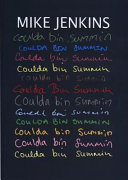 MIKE JENKINS
Coulda bin Summin
COULDA BIN SUMMIN
Coulda bin Summin
COULDA BIN SUMMIN
Coulda bin Summin
COULDA BIN SUMMIN
Coulda bin Summin
Coulda bin Summin
COULDA BIN SUMMIN
Coulda bin Summin
Coulda bin Summin
Coulda bin Summin